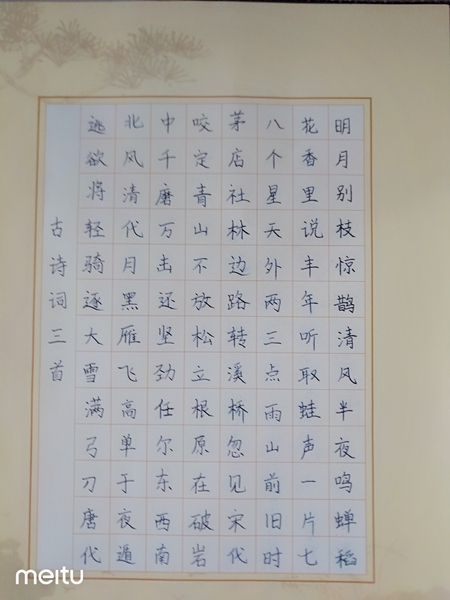 明月别枝惊鹊清风半夜鸣蝉稻
花香里说丰年听取蛙声一片七
八个星天外两三点雨山前旧时
茅店社林边路转溪桥忽见宋代
咬定青山不放松立根原在破岩
中千磨万击还坚劲任尔东西南
北风清代月黑雁飞高单于夜遁
逃欲将轻骑逐大雪满弓刀唐代
古诗词三首
meitu